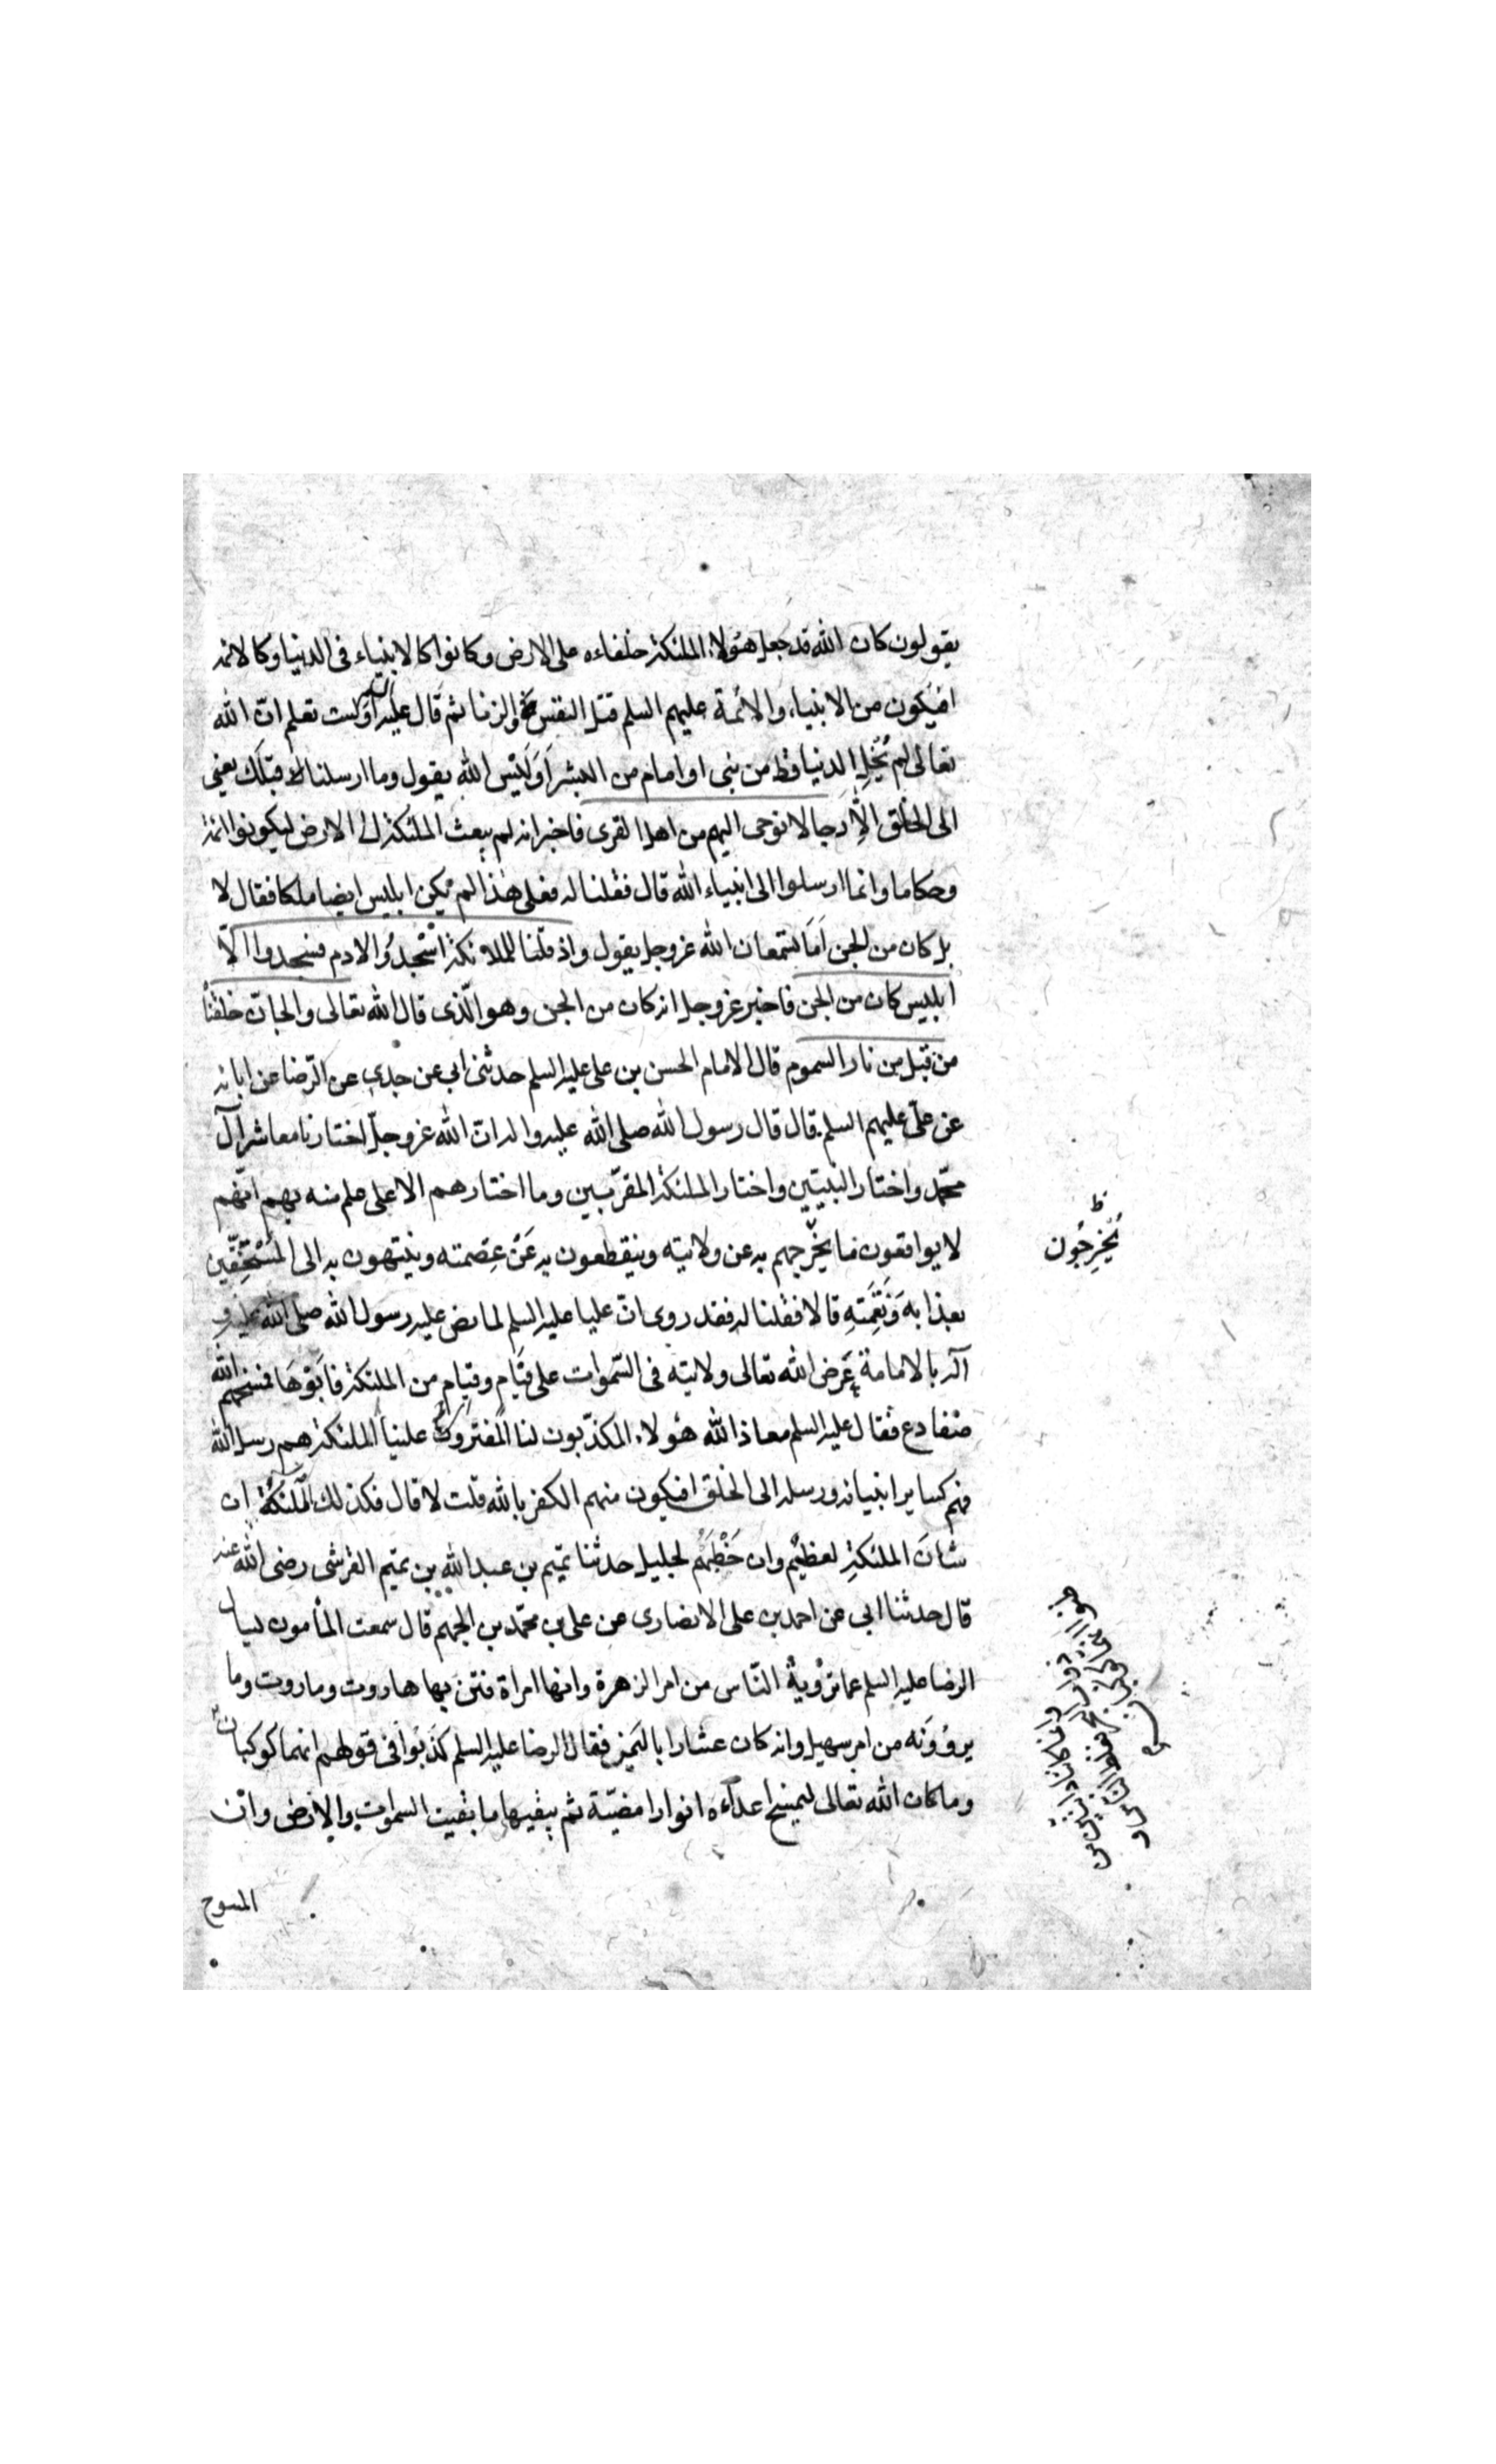 يقولون كان الله قد جعل هؤلاء الملئكة خلفاءه على الارض وكانوا كالانبياء فى الدنيا وكالائمة
افيكون من الانبياء والائمة عليهم السلم قتل النفس والزنا ثم قال عليه السلم اولست تعلم انّ الله
تعالى لم يُخْلِ الدنيا قط من نبى او امام من البشر اَوَلَيْس الله يقول وما ارسلنا قبلك يعنى
الى الخلق الّا رجالا نوحى اليهم من اهل القرى فاخبر انه لم يبعث الملئكة الى الارض ليكونوا ائمة
وحكاما وانما ارسلوا الى انبياء الله قال فقلنا له فعلى هذا لم يكن ابليس ايضا ملكا فقال لا
بل كان من الجن اَمَا تسمعان الله عزوجل يقول واذ قلنا للملائكة اسْجدُوا لادم فسجدوا الّا
ابليس كان من الجن فاخبر عزوجل انه كان من الجن وهو الّذى قال الله تعالى والجانّ خلقناه
من قبل من نار السموم قال الامام الحسن بن على عليه السلم حدثنى ابى عن جدى عن الرّضا عن ابائه
عن علىّ عليهم السلم قال قال رسول الله صلى الله عليه واله انّ الله عزوجلّ اختارنا معاشر آل
محمّد واختار النبيّين واختار الملئكة المقرّبين وما اختارهم الا على علم منه بهم انّهم
لا يواقعون ما يخرجهم به عن ولايته وينقطعون به عَنْ عِصْمته وينتهون به الى المُسْتَحِقّين
بعذابه وَنَقِمَتِهِ قالا فقلنا له فقد روى انّ عليا عليه السلم لما نص عليه رسول الله صلى الله عليه و
آله بالامامة عَرض الله تعالى ولايته فى السّموات على فِئَامٍ وفئِامٍ من الملئكة فابَوْهَا فمسخهم الله
ضفادع فقال عليه السلم معاذ الله هؤلاء المكذّبون لنا المفترون علينا الملئكة هم رسل الله
فهم كساير انبيائه ورسله الى الخلق افيكون منهم الكفر بالله قلت لا قال فكذلك الملَئكَةُ ان
شَانَ الملئكةِ لعظيْم وان خَطْبَهُم لجليل حدثنا تميم بن عبد الله بن تميم القرشى رضى الله عنه
قال حدثنا ابى عن احمد بن على الانصارى عن على بن محمّد بن الجهم قال سمعت المأمون يسال
الرضا عليه السلم عما تَرْويهُ النّاس من امر الزهرة وانها امراة فتنَ بها هاروت وماروت وما
يروُوَنَه من امر سهيل وانه كان عشارا باليمن فقال الرضا عليه السلم كذبُوا فى قولهم انهما كوكبان
وما كان الله تعالى ليمسخ اعداَءه انوارا مضيّة ثم يبقيها ما بقيت السموات والارض وانّ
المسوخ
ظ
يُخْرِجُون